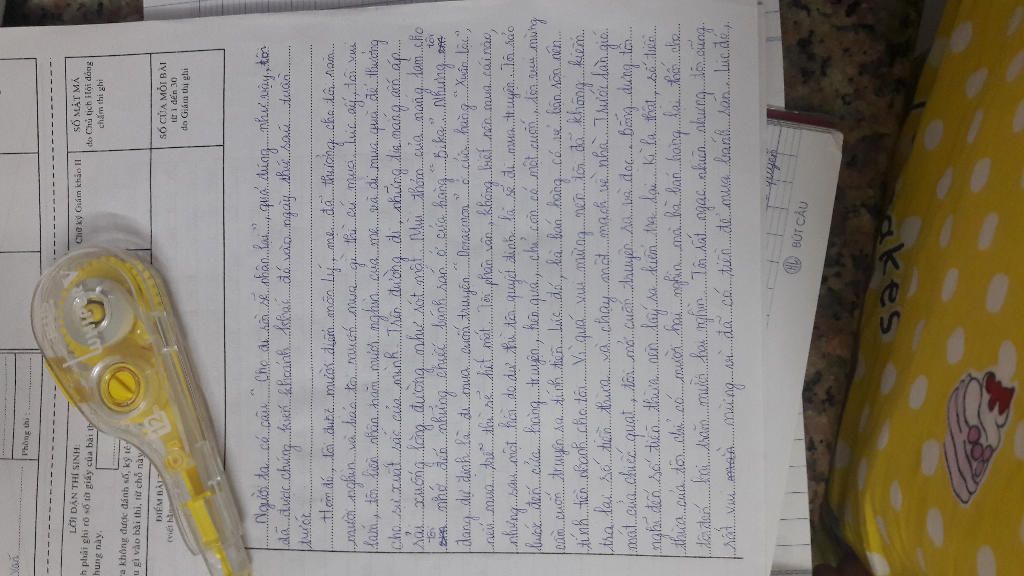 Phòng thi:
LỜI DẶN THÍ SINH:
phải ghi rõ số tờ giấy của bài th
hung này.
a không được đánh số, ký tê
u gì vào bài thi, từ chỗ này
ĐIỂM BÀI
Chữ ký Giám khảo II
SỐ MẬT MÃ
do Chủ tịch Hội đồng
chấm thi ghi
SỐ CỦA MỖI BÀI
từ 1 đến 30
do Giám thị ghi
Người ta có câu "Cho đi sẽ nhận lại", quả đúng như vậy, tôi
đã được chứng kiến khoảnh khắc đó vào ngày thứ sáu tuần
trước.
Hôm đó, tôi được mười điểm môn Lý, mẹ đã thưởng cho tôi năm
mươi nghìn và bảo tôi muốn mua gì thì cứ mua. Lúc ấy, tôi vui
lắm, tôi liền nhận năm mươi nghìn của mẹ và đi mua quà để thưởng
cho sự xuất sắc của mình. Trên đường đi những tia nắng ấm áp
rọi xuống lòng đường như rót mật. Mùi thơm của nắng làm cho
tôi nhớ đến những chiếc bánh sần ở cửa hàng "Bika". Nhưng tôi
đang dự định là đi mua cuốn truyện "Doraemon" ở cửa hàng "Xuân Lai",
nếu mua trễ thì sẽ hết mất. Tôi phân vân, không biết nên mua cái nào,
nhưng sau một hồi do dự thì tôi quyết định là sẽ đi mua truyện. Tôi rảo
bước đến cửa hàng truyện, hên quá, chỉ còn có một cuốn, tôi vui mừng
cầm cuốn truyện ra tính tiền. Lúc đó, bà bán hàng có vẻ bận rộn nên
tính tiền nhanh cho tôi. Vì quá vui mừng nên tôi đã không kiểm
tra lại số tiền thừa và chạy một mạch về nhà. Trước làn gió
mát của chiếc quạt, tôi mở cuốn truyện ra và đọc. Bỗng dưng tôi
nghĩ đến số tiền thừa nên lấy ra kiểm tra lại. Kì lạ thật, số tiền
thừa của tôi chỉ có mười hai nghìn mà bà bán hàng lại thối cho
tôi đến hai trăm mười hai nghìn. Tôi rất ngạc nhiên nhưng tôi cũng
rất vui mừng vì đã có tiền để mua bánh sần. Lúc đó,
BÚT CÂU
akes